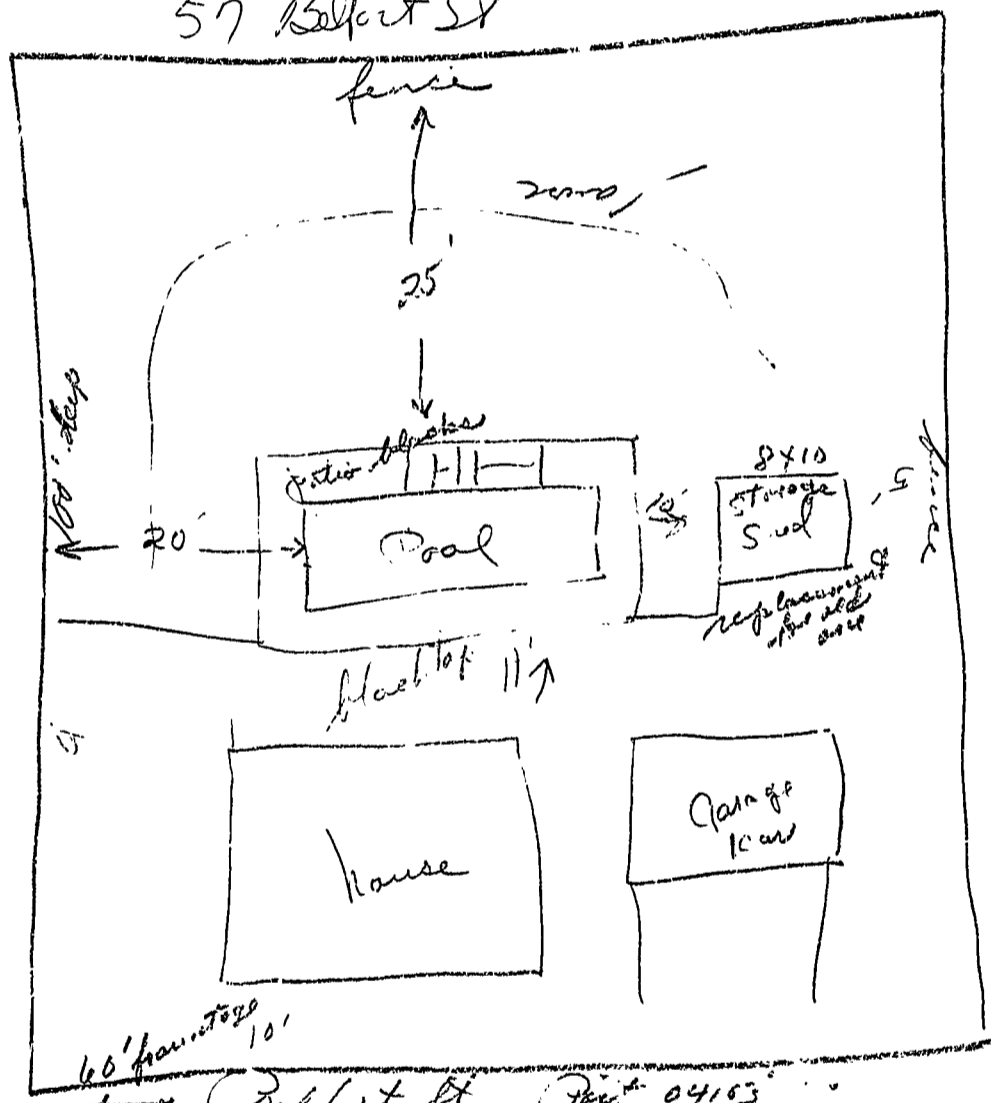 57 Belfort St
fence
25'
100' deep
patio blocks
8x10
Storage
Sed
5'
fence
20'
Pool
10'
replacement
for old
one
blacktop 11'
House
Garage
1 car
60' frontage
10'
Belfort St 04103